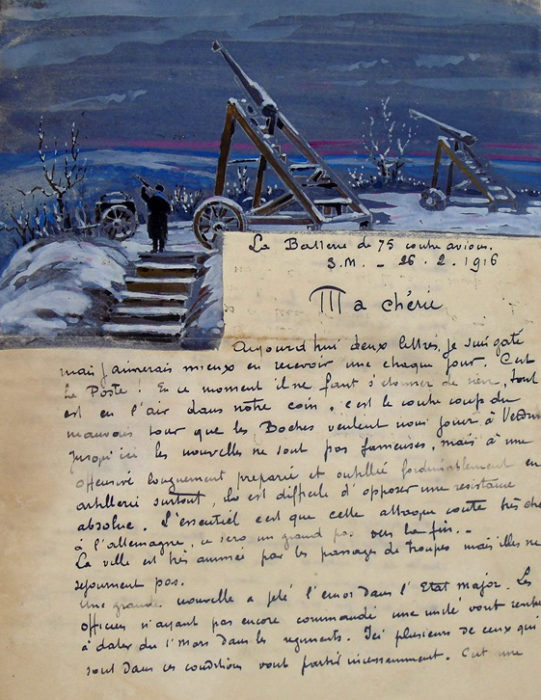 La Batterie de 75 contre avions.
S.M. - 26.2.1916
Ma chérie
Aujourd'hui deux lettres, je suis gaté
mais j'aimerais mieux en recevoir une chaque jour. C'est
la Poste ! En ce moment il ne faut s'étonner de rien, tout
est en l'air dans notre coin, c'est le contre coup du
mauvais tour que les Boches veulent nous jouer à Verdun
jusqu'ici les nouvelles ne sont pas fameuses, mais à une
offensive longuement preparée et outillée formidablement en
artillerie surtout, il est difficile d'opposer une resistance
absolue. L'essentiel c'est que cette attaque coute très cher
à l'allemagne, ce sera un grand pas vers la fin. -
La ville est très animée par les passages de troupes mais elles ne
sejournent pas.
Une grande nouvelle a jeté l'émoi dans l'Etat Major. Les
officiers n'ayant pas encore commandé une unité vont rentrer
à dater du 1 Mars dans les regiments. Ici plusieurs de ceux qui
sont dans ces conditions vont partir incessamment. C'est une